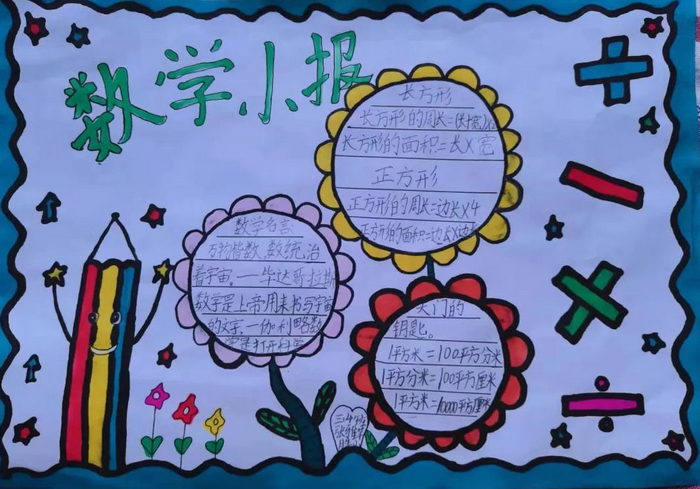 数学小报
长方形
长方形的周长=(长+宽)×2
长方形的面积=长×宽
正方形
正方形的周长=边长×4
正方形的面积=边长×边长
数学名言
万物皆数,数统治
着宇宙。——毕达哥拉斯
数学是上帝用来书写宇宙
的文字。—伽利略数
学是打开科学
大门的
钥匙。
1平方米=100平方分米
1平方分米=100平方厘米
1平方米=10000平方厘米
三4班